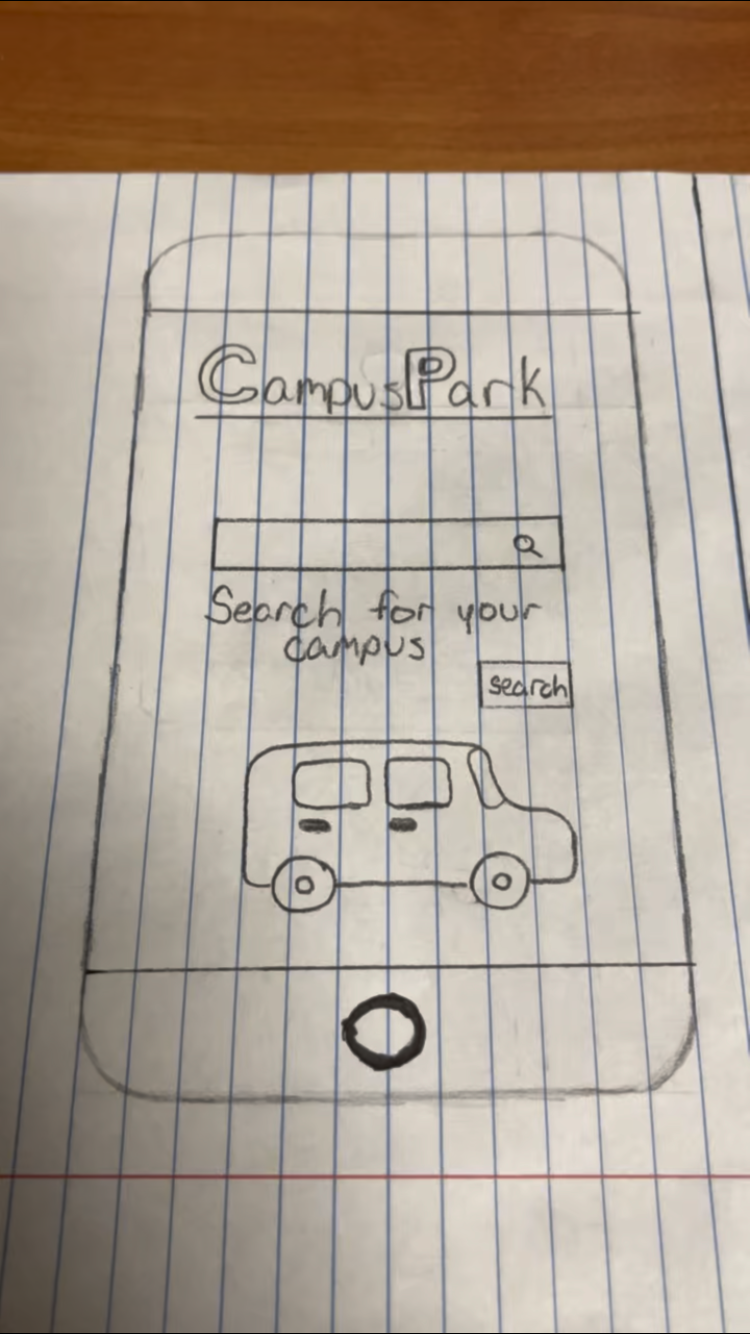 CampusPark
Search for your
campus
search